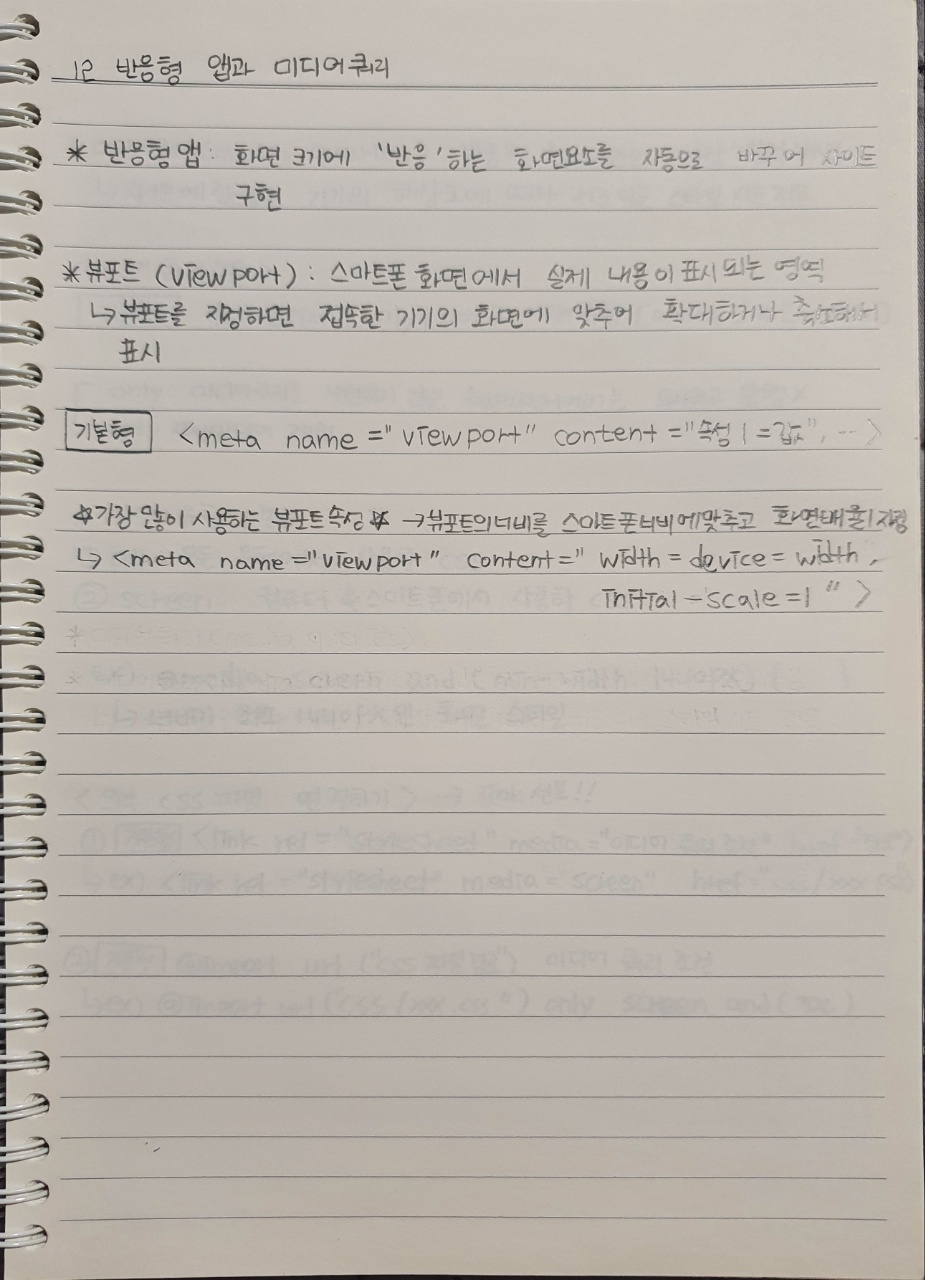 12 반응형 앱과 미디어쿼리
* 반응형 앱 : 화면 크기에 '반응'하는 화면요소를 자동으로 바꾸어 사이트
구현
* 뷰포트 (viewport) : 스마트폰 화면에서 실제 내용이 표시되는 영역
↳ 뷰포트를 지정하면 접속한 기기의 화면에 맞추어 확대하거나 축소해서
표시
기본형 <meta name = "viewport" content = "속성1=값", ...>
☆가장 많이 사용하는 뷰포트 속성☆ → 뷰포트의 너비를 스마트폰 너비에 맞추고 화면배율 1 지정
↳ <meta name = "viewport" content = " width = device = width,
initial - scale = 1 " >